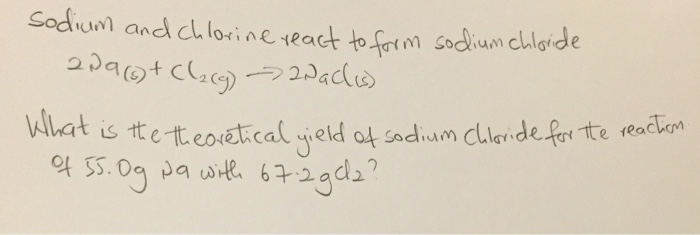 Sodium and chlorine react to form sodium chloride
2Na(s) + Cl2(g) → 2NaCl(s)
What is the theoretical yield of sodium chloride for the reaction
of 55.0g Na with 67.2gcl2?